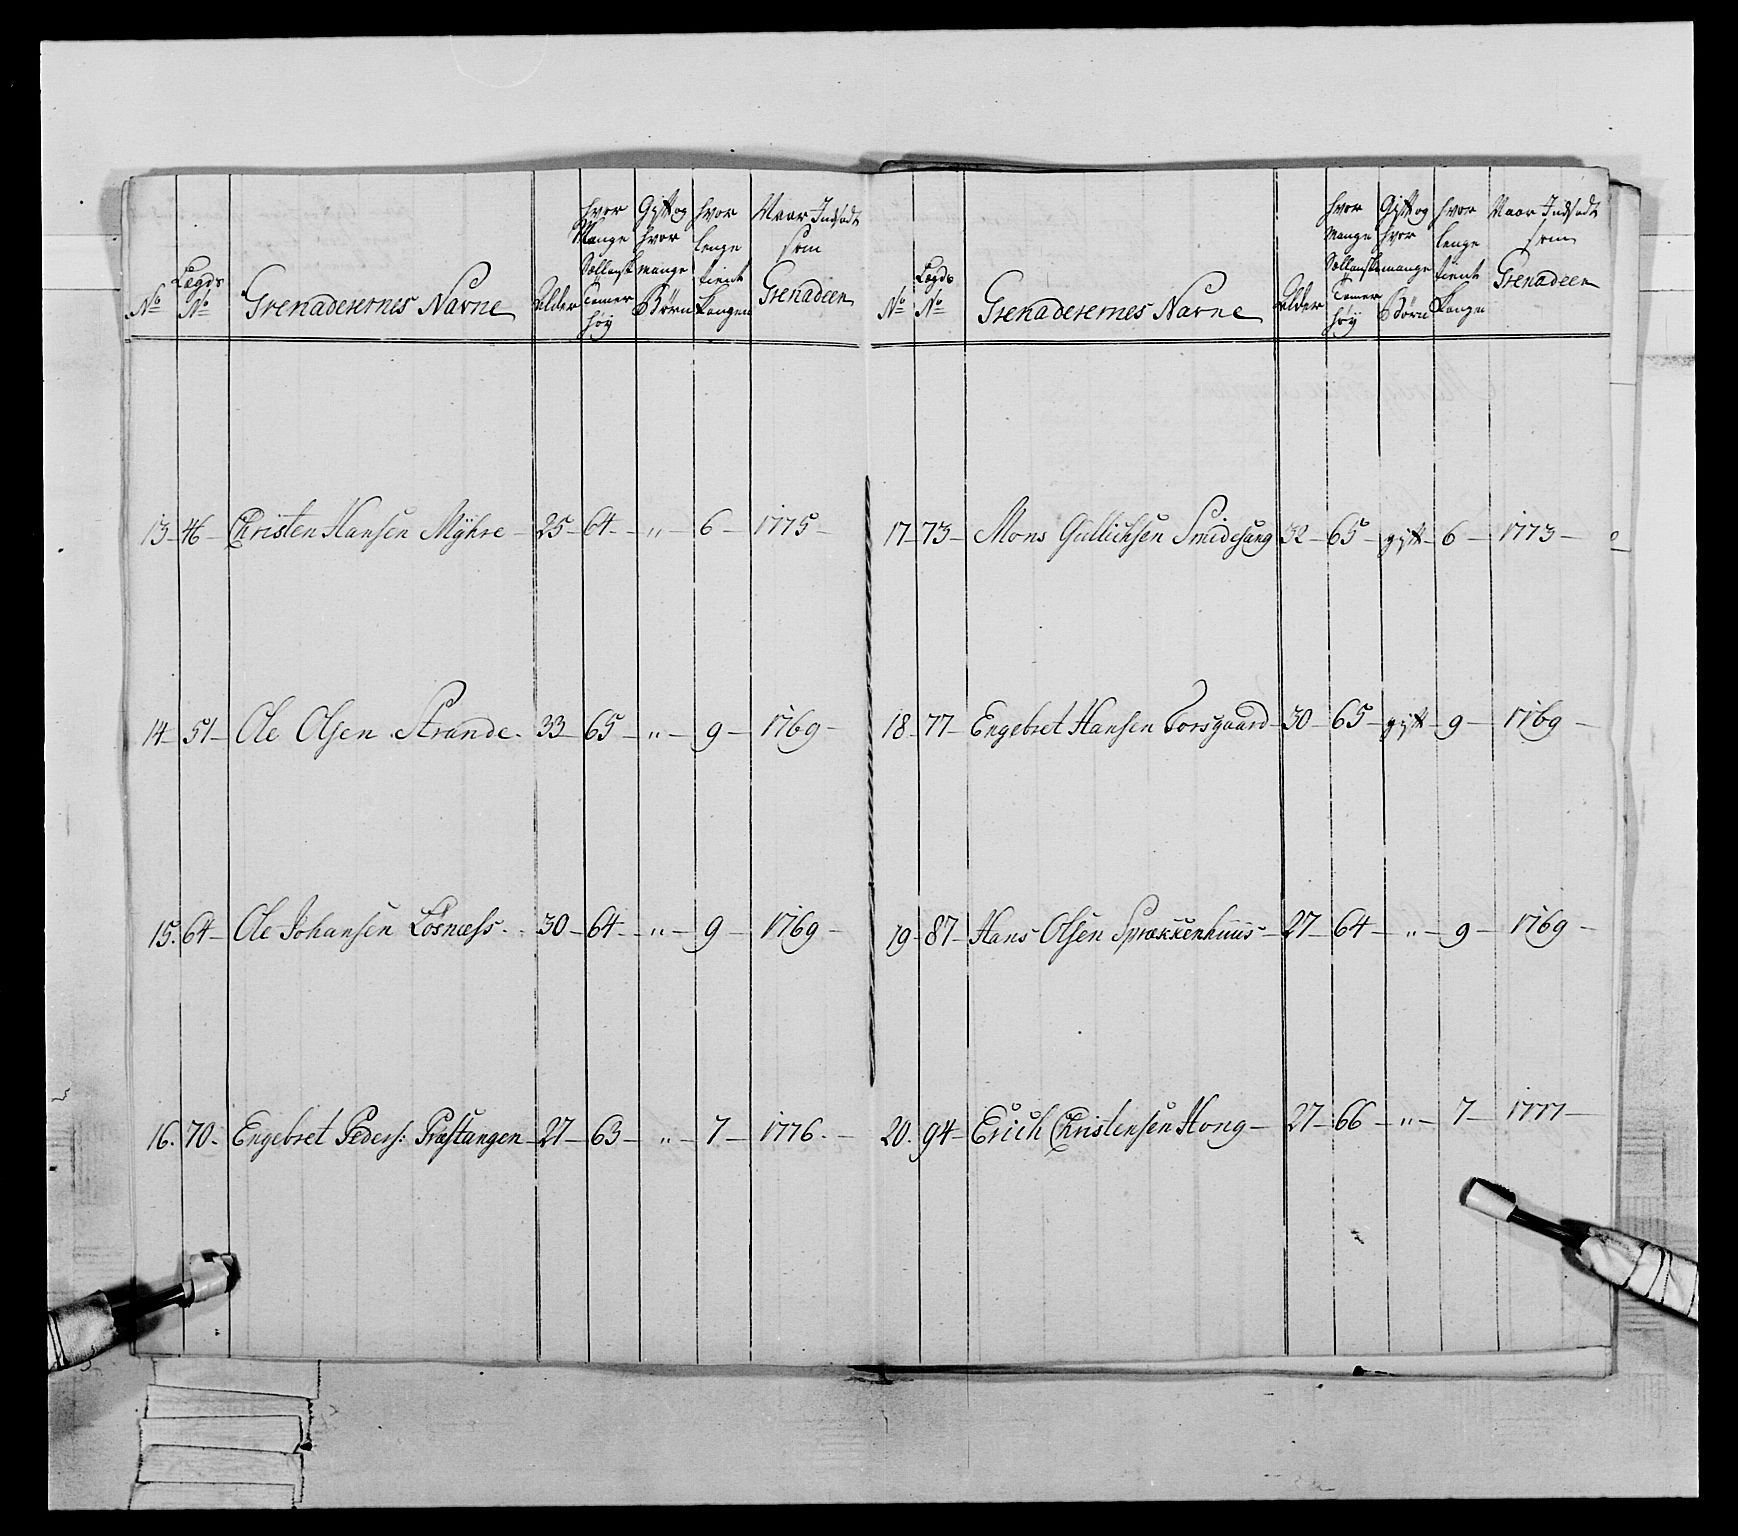 No Lægds No Grenaderernes Navne Alder hvor Mange Sællansk Tomer høy Gift og hvor mange Børn hvor lenge tient Kongen Naar Indsadt som Grenadeer
13 - 46 - Christen Hansen Mÿhre - 25 - 64 - " - 6 - 1775 -
14 - 51 - Ole Olsen Strande - 33 - 65 - " - 9 - 1769 -
15. 64 - Ole Johansen Løsnæss - 30 - 64 - " - 9 - 1769 -
16. 70. Engebret Peders: Præstangen - 27 - 63 - " - 7 - 1776. -
No Lægds No Grenaderernes Navne Alder hvor mange Sællansk Tomer høÿ Gift og hvor mange Børn hvor lenge tient Kongen Naar Indsadt som Grenadeer
17 - 73 - Mons Gullichsen Smidesang 32 - 65 - gift - 6 - 1773 -
18 - 77 - Engebret Hansen Torsgaard - 30 - 65 - gift - 9 - 1769 -
19 - 87 - Hans Olsen Sprækkenhuus - 27 - 64 - " - 9 - 1769 -
20. 94 - Erich Christensen Hong - 27 - 66 - " - 7 - 1777 -